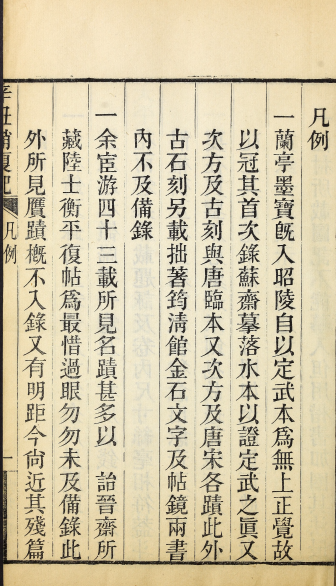 凡例
一蘭亭墨寶旣入昭陵自以定武本爲無上正覺故
以冠其首次錄蘇齋摹落水本以證定武之眞又
次方及古刻與唐臨本又次方及唐宋各蹟此外
古石刻另載拙著筠淸館金石文字及帖鏡兩書
內不及備錄
一余宦游四十三載所見名蹟甚多以　詒晉齋所
藏陸士衡平復帖爲最惜過眼匆匆未及備錄此
外所見贋蹟槪不入錄又有明距今尙近其殘篇
辛丑銷夏記
凡例
一